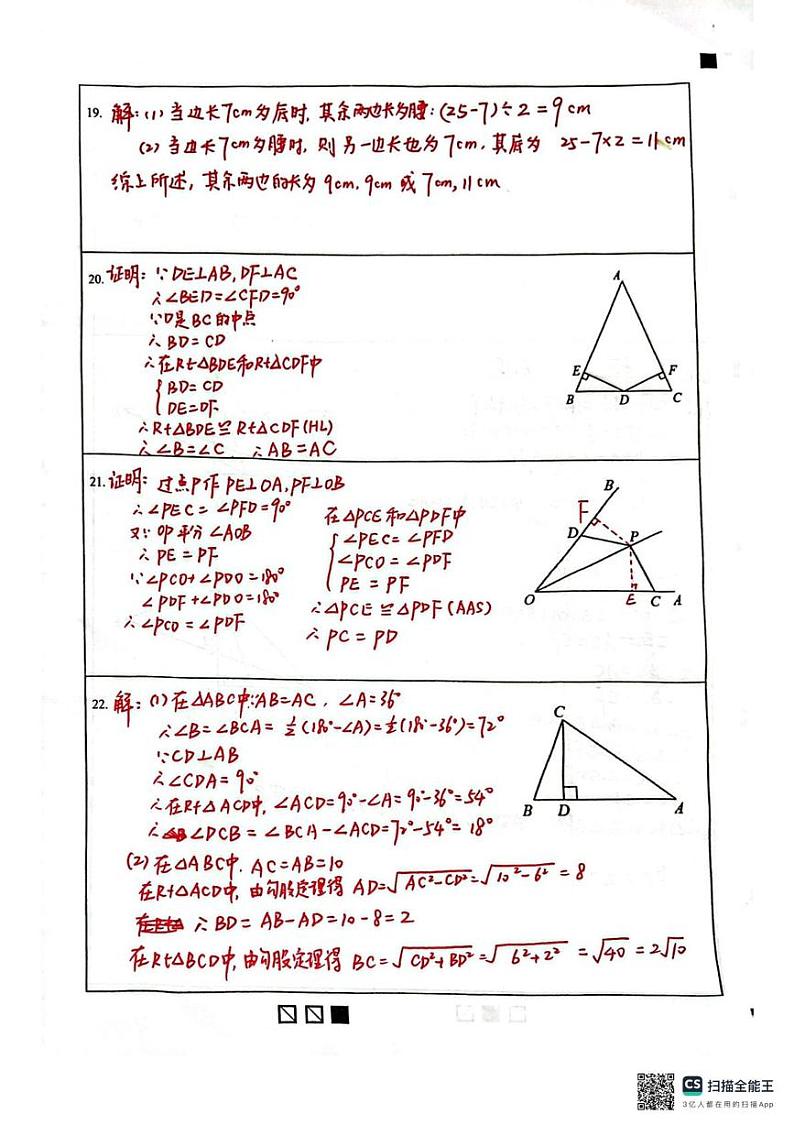 19. 解：(1) 当边长7cm为底时，其余两边长为腰：(25-7)÷2=9cm
(2) 当边长7cm为腰时，则另一边长也为7cm，其底为 25-7×2=11cm
综上所述，其余两边的长为 9cm，9cm 或 7cm，11cm
20. 证明：∵DE⊥AB，DF⊥AC
∴∠BED=∠CFD=90°
∵D是BC的中点
∴BD=CD
∴在Rt△BDE和Rt△CDF中
BD=CD
DE=DF
∴Rt△BDE≌Rt△CDF(HL)
∴∠B=∠C ∴AB=AC
A
E F
B D C
21. 证明：过点P作PE⊥OA，PF⊥OB
∴∠PEC=∠PFD=90°
又∵OP平分∠AOB
∴PE=PF
∵∠PCO+∠PDO=180°
∠PDF+∠PDO=180°
∴∠PCO=∠PDF
在△PCE和△PDF中
∠PEC=∠PFD
∠PCO=∠PDF
PE=PF
∴△PCE≌△PDF(AAS)
∴PC=PD
B
F
D P
O E C A
22. 解：(1) 在△ABC中∵AB=AC，∠A=36°
∴∠B=∠BCA=½(180°-∠A)=½(180°-36°)=72°
∵CD⊥AB
∴∠CDA=90°
∴在Rt△ACD中，∠ACD=90°-∠A=90°-36°=54°
∴∠DCB=∠BCA-∠ACD=72°-54°=18°
(2) 在△ABC中，AC=AB=10
在Rt△ACD中，由勾股定理得 AD=√(AC²-CD²)=√(10²-6²)=8
∴BD=AB-AD=10-8=2
在Rt△BCD中，由勾股定理得 BC=√(CD²+BD²)=√(6²+2²)=√40=2√10
C
B D A
CS 扫描全能王
3亿人都在用的扫描App